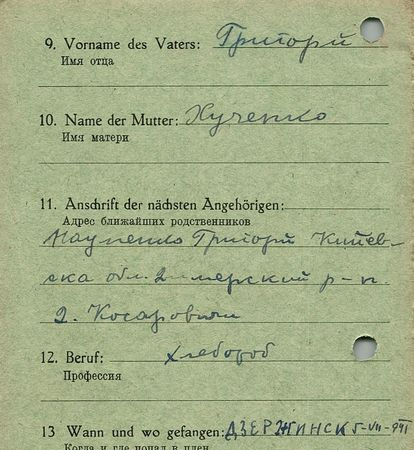 9. Vorname des Vaters: Григорій
Имя отца
10. Name der Mutter: Кученко
Имя матери
11. Anschrift der nächsten Angehörigen:
Адрес ближайших родственников
Науменко Григорій Киев-
ска обл. Димерский р-н
Косарович
12. Beruf: хлебороб
Профессия
13 Wann und wo gefangen: ДЗЕРЖИНСК 5-VII-941
Когда и где попал в плен